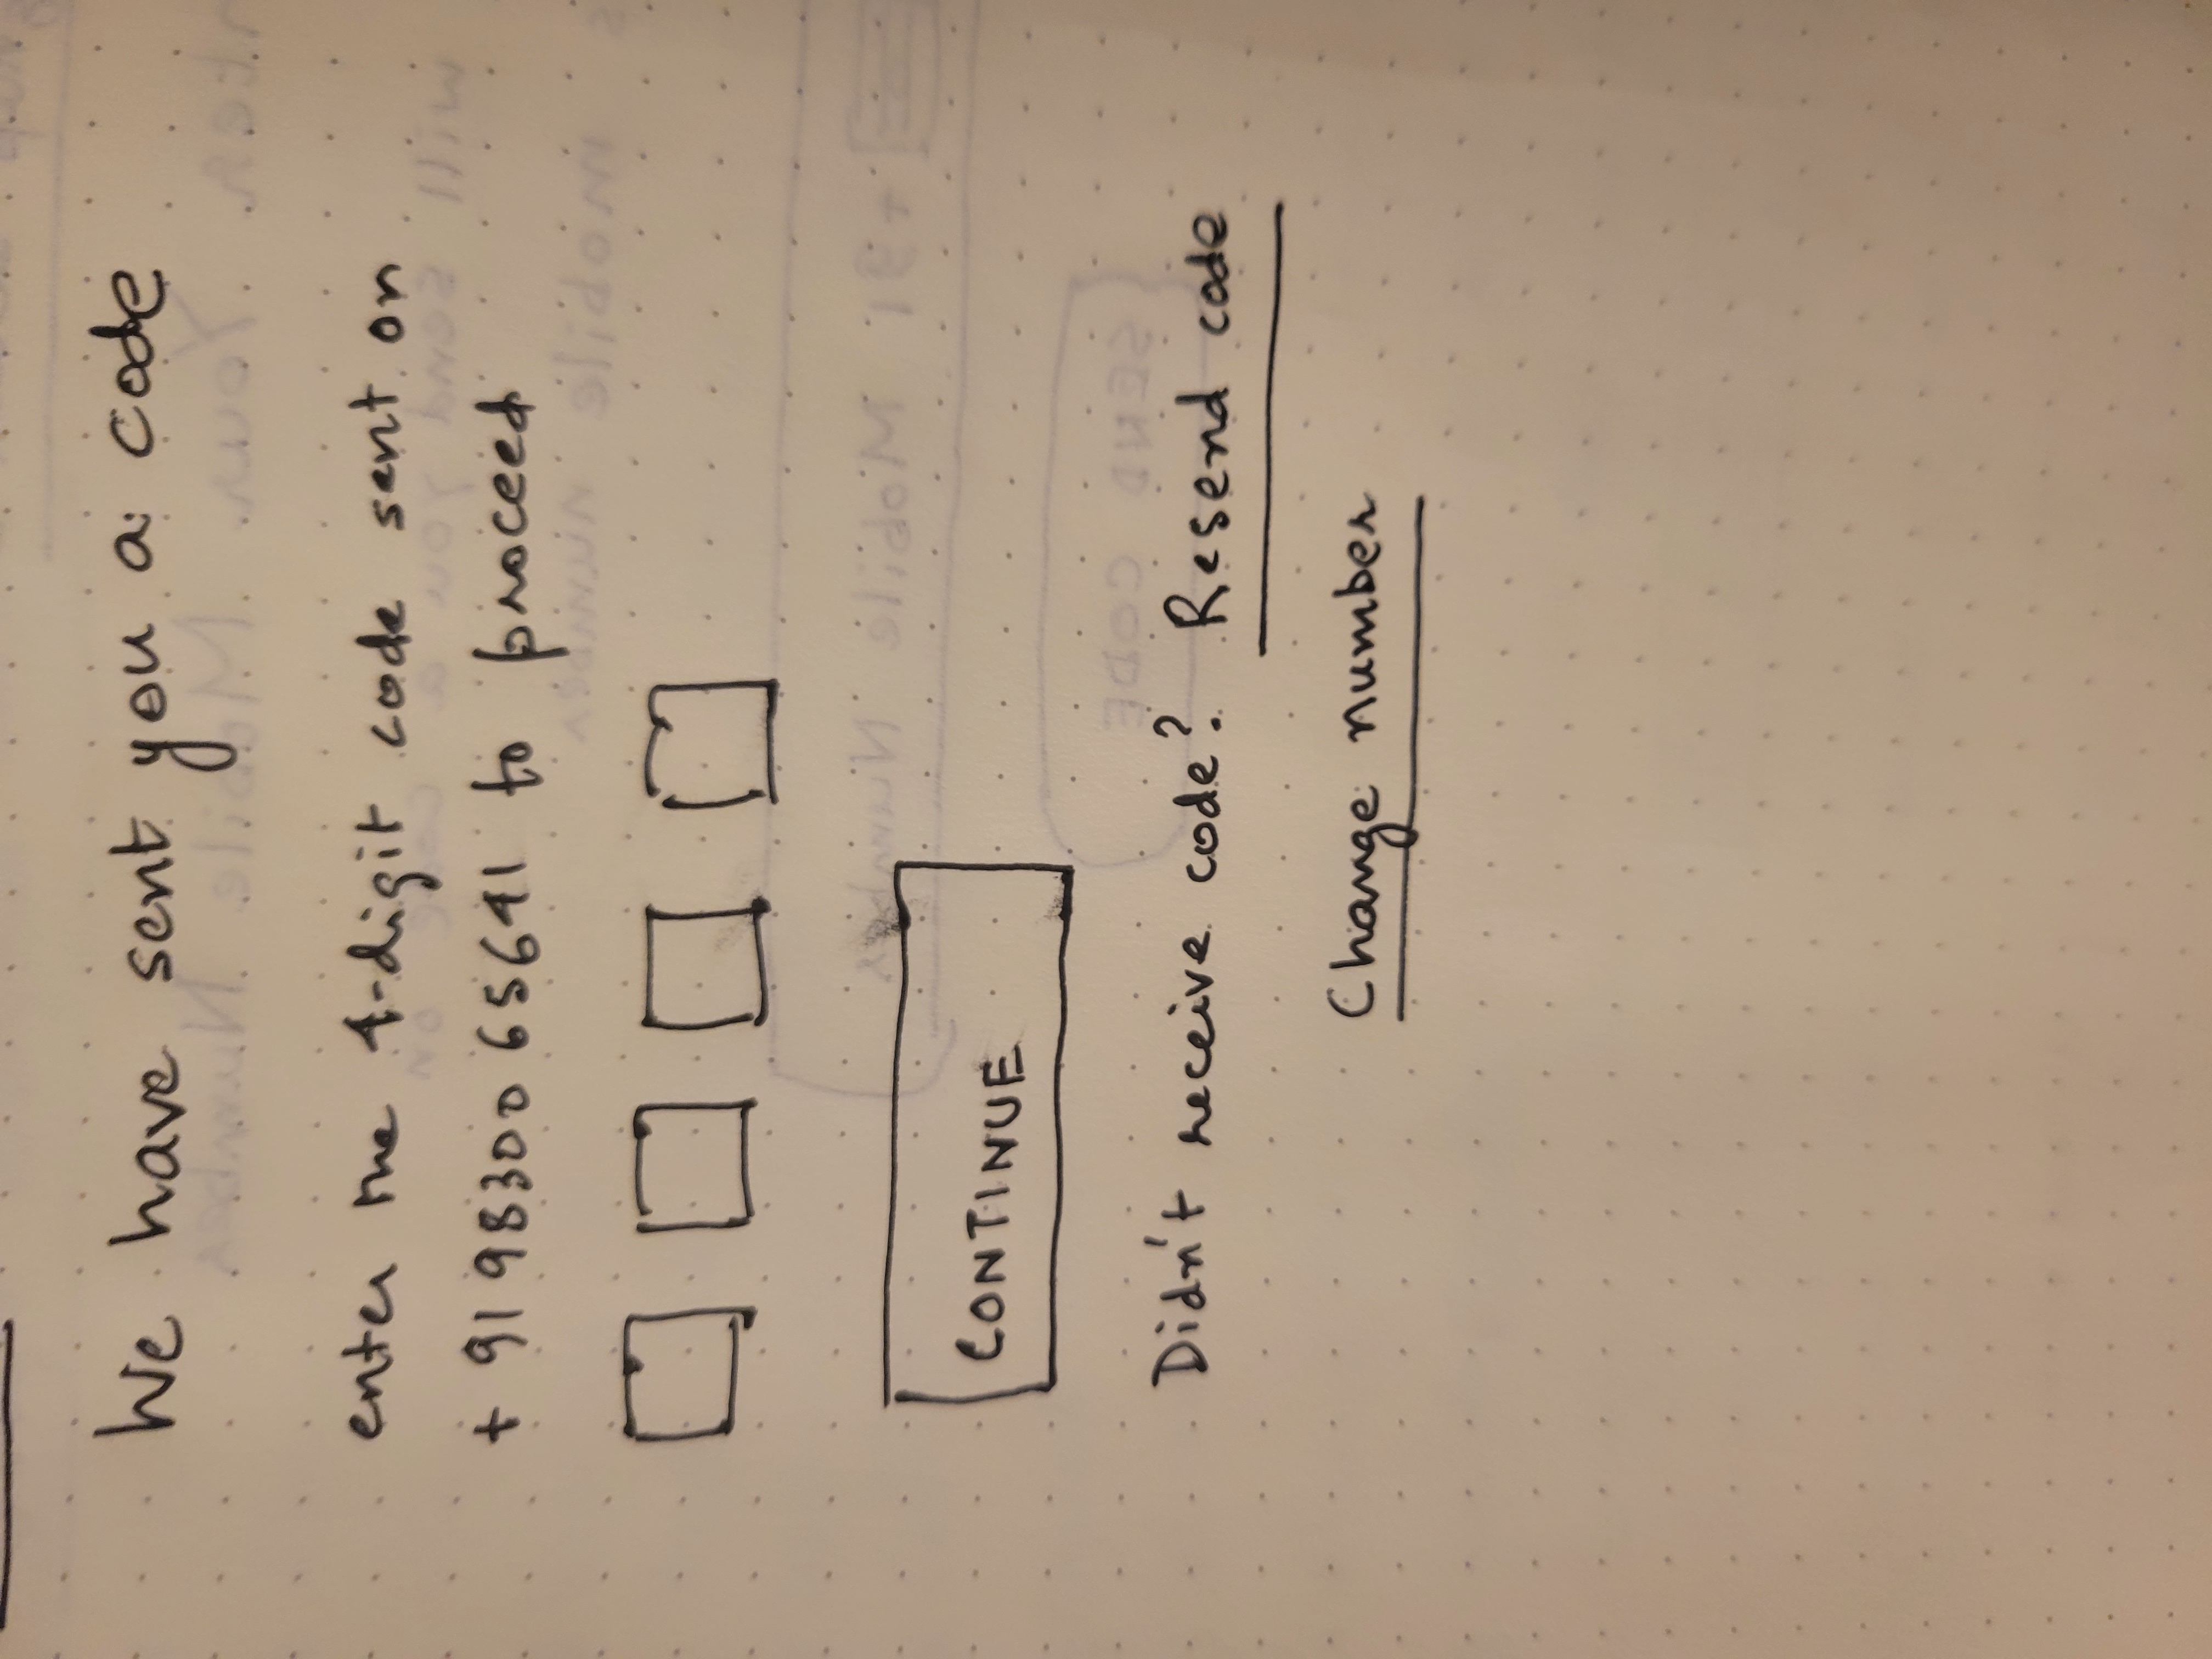 We have sent you a code
enter the 4-digit code sent on
+ 91 98300 65641 to proceed
CONTINUE
Didn't receive code? Resend code
Change number